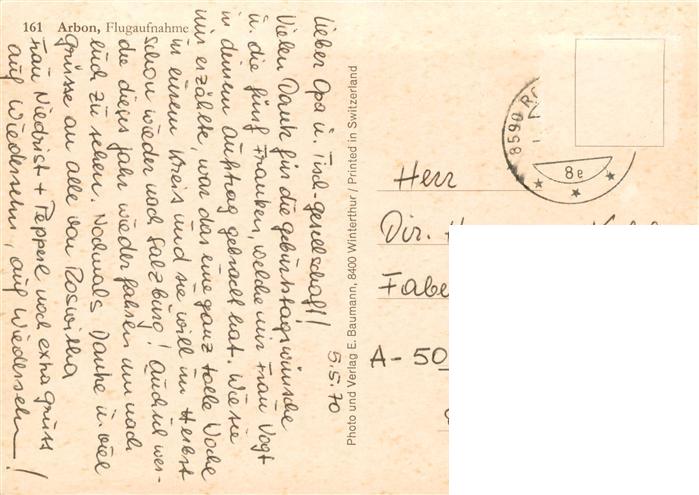 161 Arbon, Flugaufnahme
5.5.70
Lieber Opa u. Tisch-gesellschaft!
Vielen Dank für die Geburtstagswünsche
u. die fünf Franken, welche mir Frau Vogt
in deinem Auftrag gebracht hat. Wie sie
mir erzählte, war das eine ganz tolle Woche
in eurem Kreis und sie will im Herbst
schon wieder nach Salzburg! Auch ich wer-
die dieses Jahr wieder fahren um nach
und zu sehen. Nochmals Danke u. viel
Grüsse an alle von Roswitha
Frau Niedrist + Pepperl noch extra Grüsse
auf Wiedersehn, auf Wiedersehn!
Photo und Verlag E. Baumann, 8400 Winterthur / Printed in Switzerland
8590 Ro
8e
Herr
Dir. H
Fabe
A-50